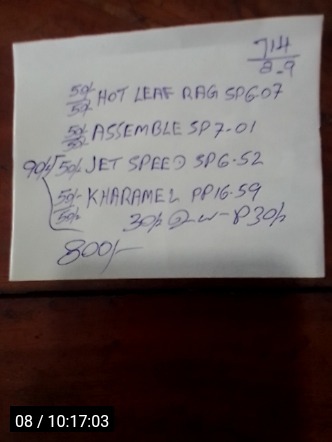 714
8.9
50/- 50/- HOT LEAF RAG SP6.07
50/- 50/- ASSEMBLE SP7-01
90/- 50/- JET SPEED SP6.52
50/- 50/- KHARAMEL PP16.59
30/- P30/-
800/-
08 / 10:17:03